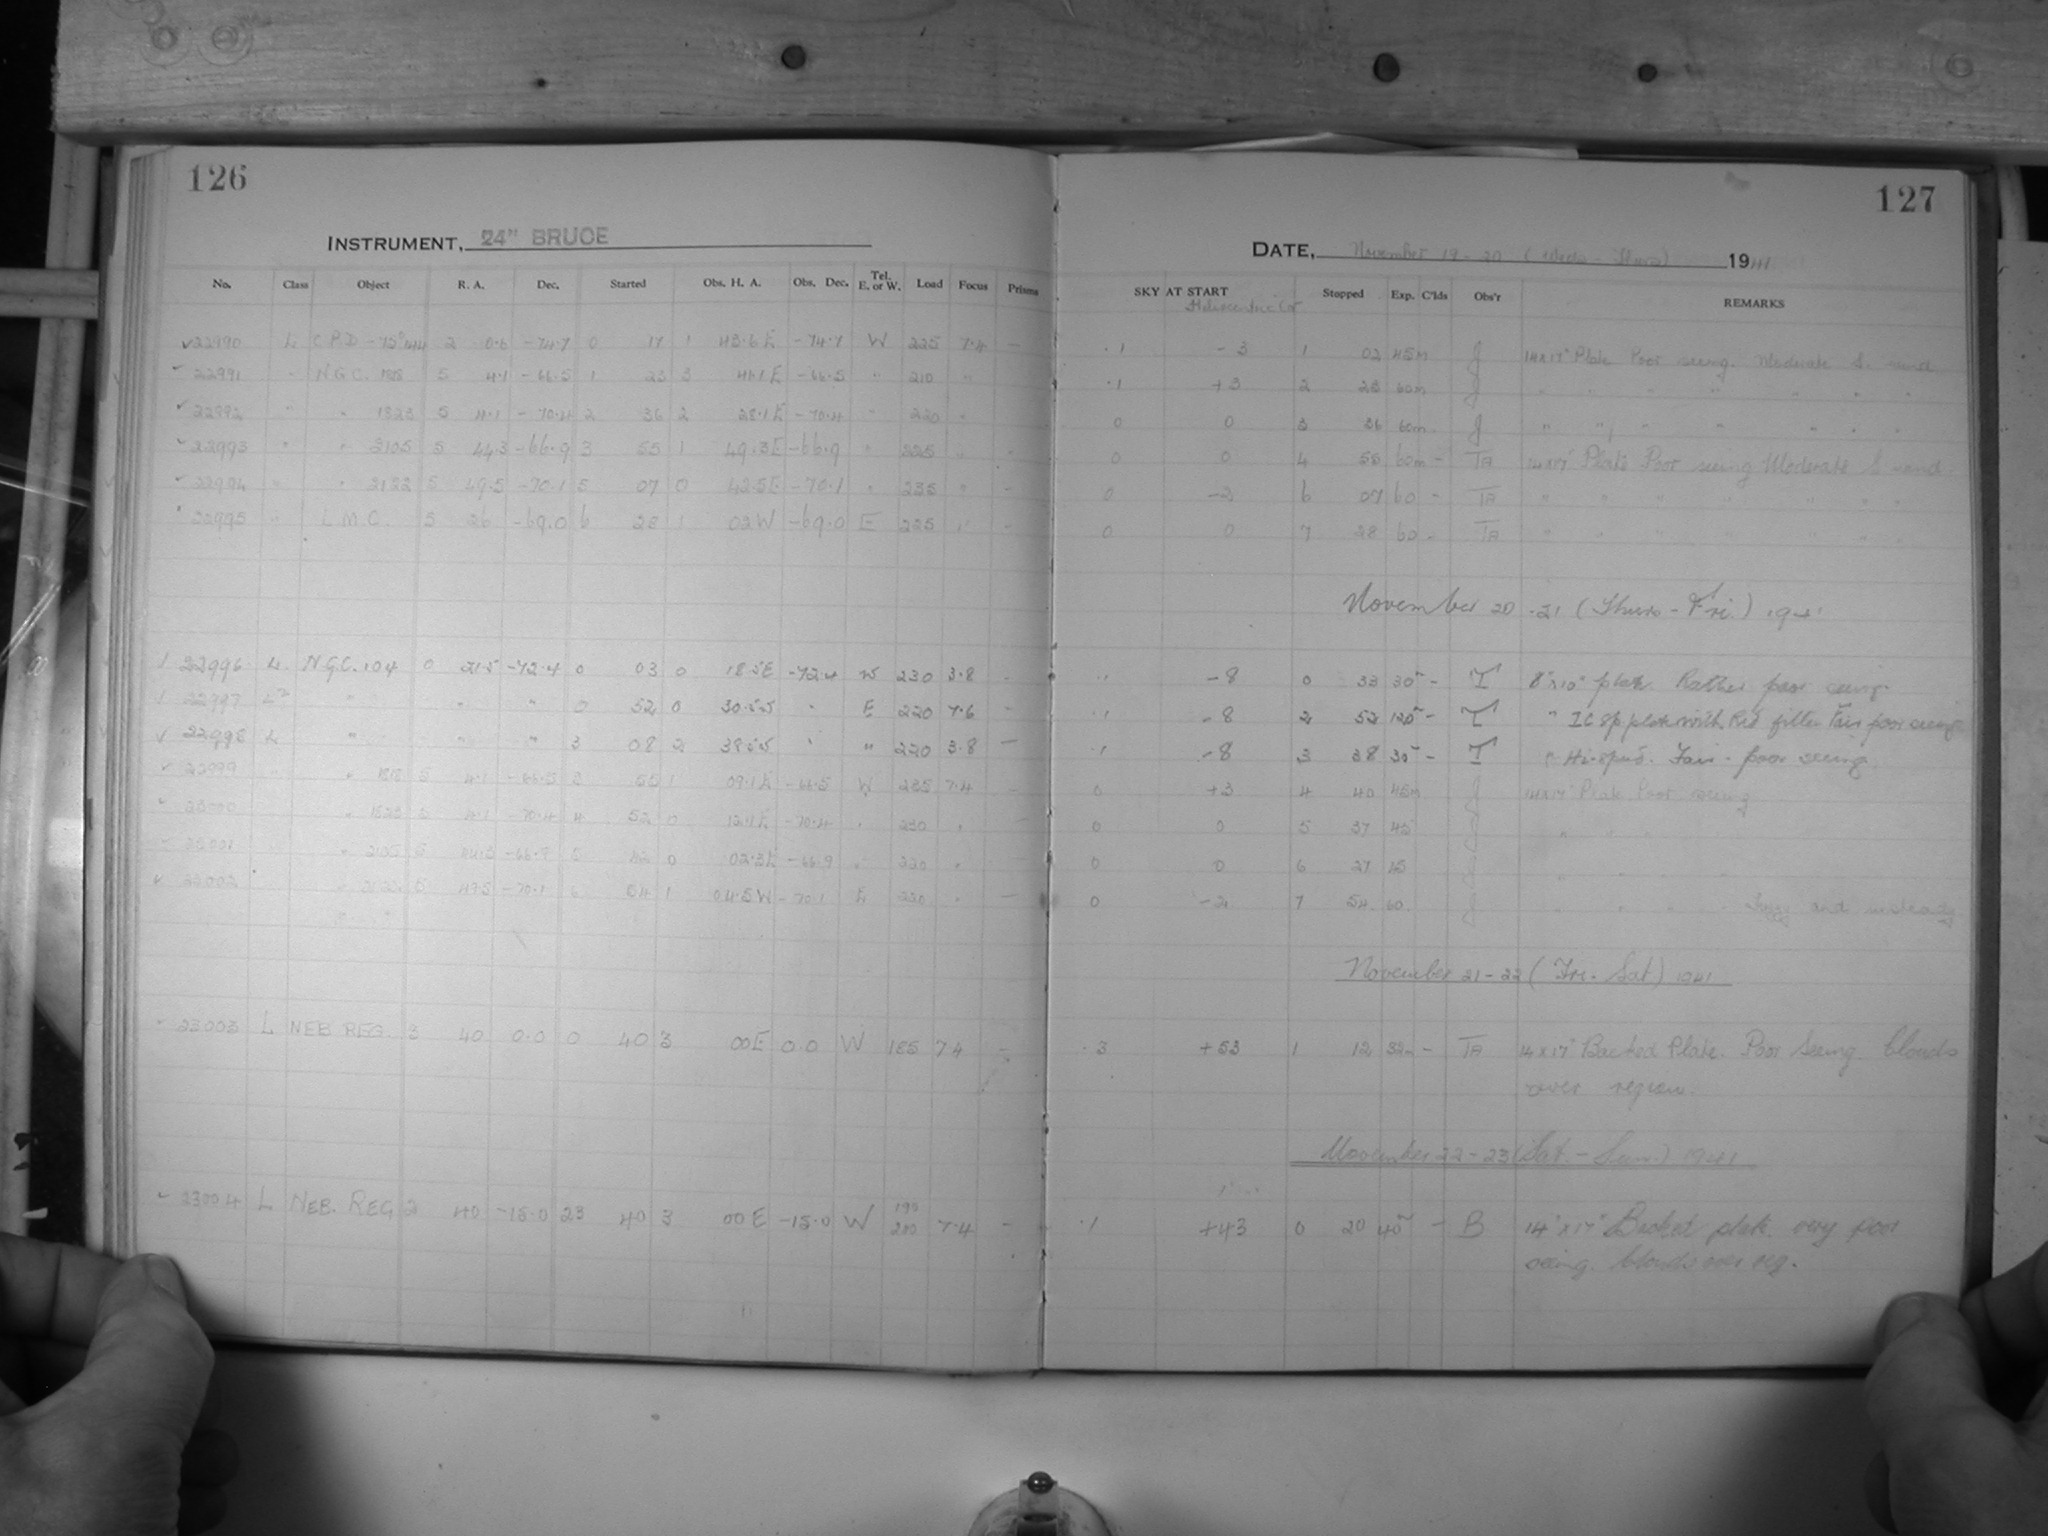 126
INSTRUMENT, 24" BRUCE
No. Class Object R. A. Dec. Started Obs. H. A. Obs. Dec. Tel. E. or W. Load Focus Prisms
22990 L C.P.D -75° 2 0.6 -74.7 0 17 1 43.6 E -74.7 W 225 7.4 -
22991 " N.G.C. 1818 5 4.1 -66.5 1 23 3 41.1 E -66.5 " 210 "
22992 " " 1823 5 4.1 -70.4 2 36 2 28.1 E -70.4 " 220 "
22993 " " 2105 5 44.3 -66.9 3 55 1 49.3 E -66.9 " 225 "
22994 " " 2122 5 49.5 -70.1 5 07 0 42.5 E -70.1 " 235 " -
22995 " L.M.C. 5 26 -69.0 6 28 1 02 W -69.0 E 225 " -
22996 L. N.G.C. 104 0 21.5 -72.4 0 03 0 18.5E -72.4 W 230 3.8 -
22997 " " " 0 52 0 30.5W " E 220 7.6 -
22998 L " " " 3 08 2 38.5W " " 220 3.8 -
22999 " 1818 5 4.1 -66.5 3 55 1 09.1 E -66.5 W 235 7.4 -
23000 " 1823 5 4.1 -70.4 4 52 0 12.1 E -70.4 " 230 "
23001 " 2105 5 44.3 -66.9 5 42 0 02.3 E -66.9 " 220 "
23002 " 2122 5 49.5 -70.1 6 54 1 04.5 W -70.1 E 220 " -
23003 L NEB REG. 3 40 0.0 0 40 3 00 E 0.0 W 185 7.4 -
23004 L NEB. REG 2 40 -15.0 23 40 3 00 E -15.0 W 190 280 7.4 -
127
DATE, November 19-20 (Weds - Thurs) 1941
SKY AT START Stopped Exp. C'lds Obs'r REMARKS
Heliocentric Cor.
.1 -3 1 02 45m J 14x17" Plate Poor seeing. Moderate S. wind
.1 +3 2 23 60m J " " " " " " "
0 0 3 36 60m J " " " " " " "
0 0 4 55 60m - TA 14x17" Plate Poor seeing Moderate S wind
0 -2 6 07 60 - TA " " " " " " "
0 0 7 28 60 - TA " " " " " " "
November 20-21 (Thurs - Fri.) 1941
.1 -8 0 33 30m - T 8"x10" plate. Rather poor seeing.
.1 -8 2 52 120m - T " IC sp plate with Red filter Fair poor seeing
.1 -8 3 38 30m - T " Hi-speed. Fair - poor seeing.
0 +3 4 40 45m J 14x17" Plate Poor seeing
0 0 5 37 45 J " " "
0 0 6 27 45 J " " " "
0 -2 7 54 60 J " " " " Fuzzy and unsteady
November 21-22 (Fri. - Sat) 1941
.3 +53 1 12 32m - TA 14x17" Backed Plate. Poor Seeing. Clouds
over region.
November 22-23 (Sat. - Sun.) 1941
.1 +43 0 20 40m - B 14"x17" Backed plate. very poor
seeing. Clouds over reg.